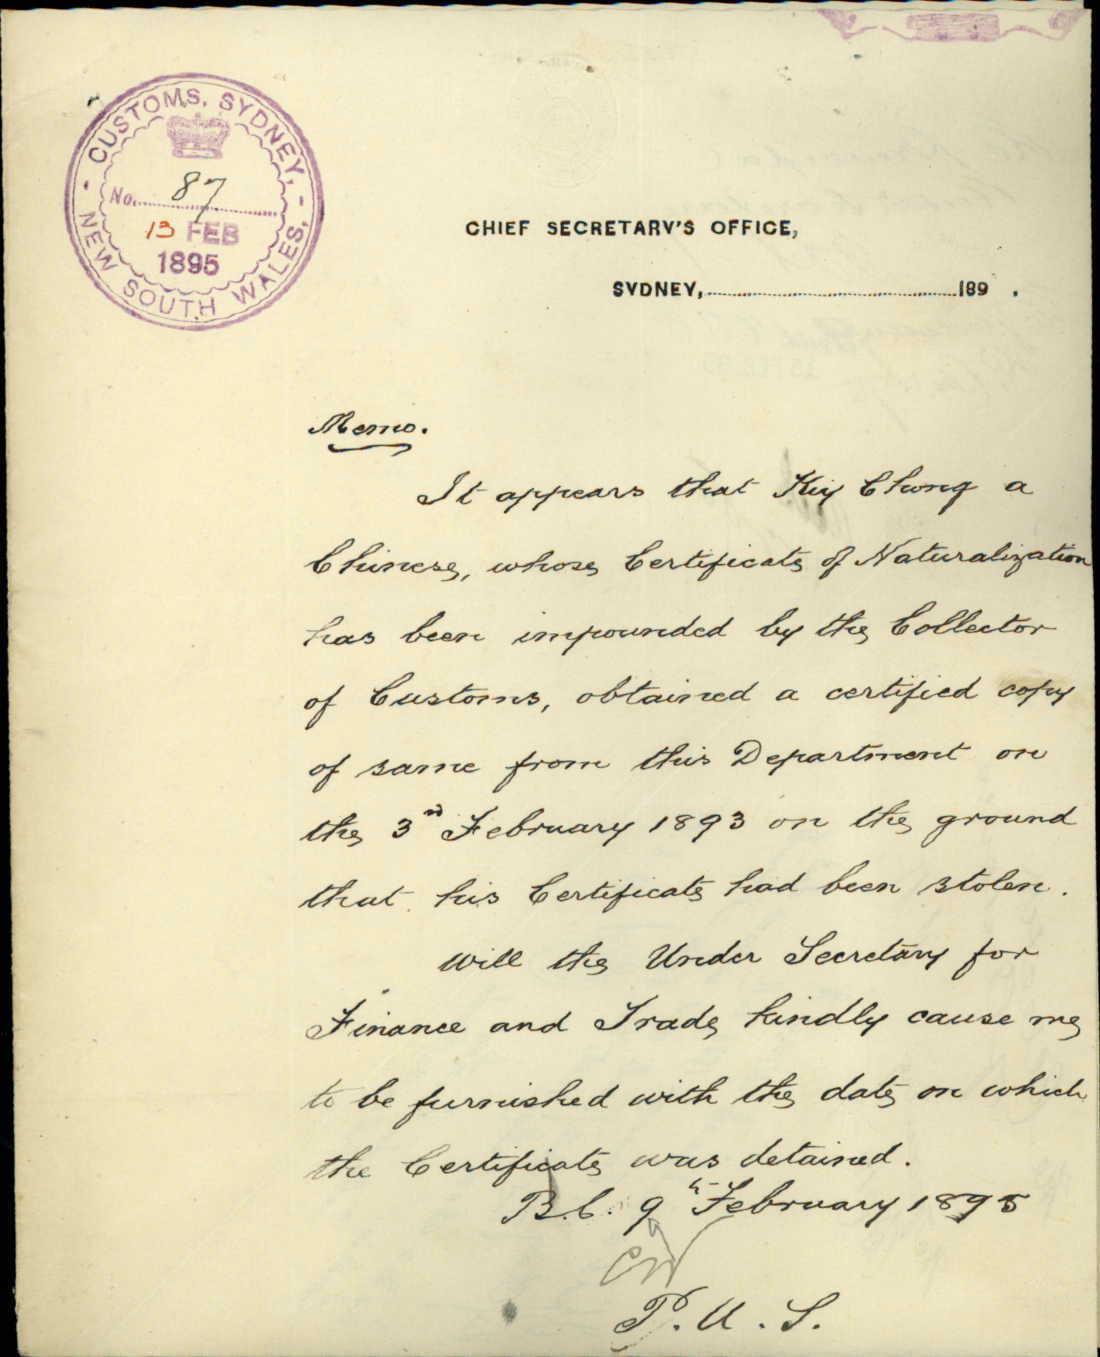 CUSTOMS, SYDNEY,
NEW SOUTH WALES.
No. 87
13 FEB
1895
CHIEF SECRETARY'S OFFICE,
SYDNEY, 189 .
Memo.
It appears that Kiy Chong a
Chinese, whose Certificate of Naturalization
has been impounded by the Collector
of Customs, obtained a certified copy
of same from this Department on
the 3rd February 1893 on the ground
that his Certificate had been stolen.
Will the Under Secretary for
Finance and Trade, kindly cause me
to be furnished with the date on which
the Certificate was detained.
B.C. 9th February 1895
CW
P. U. S.